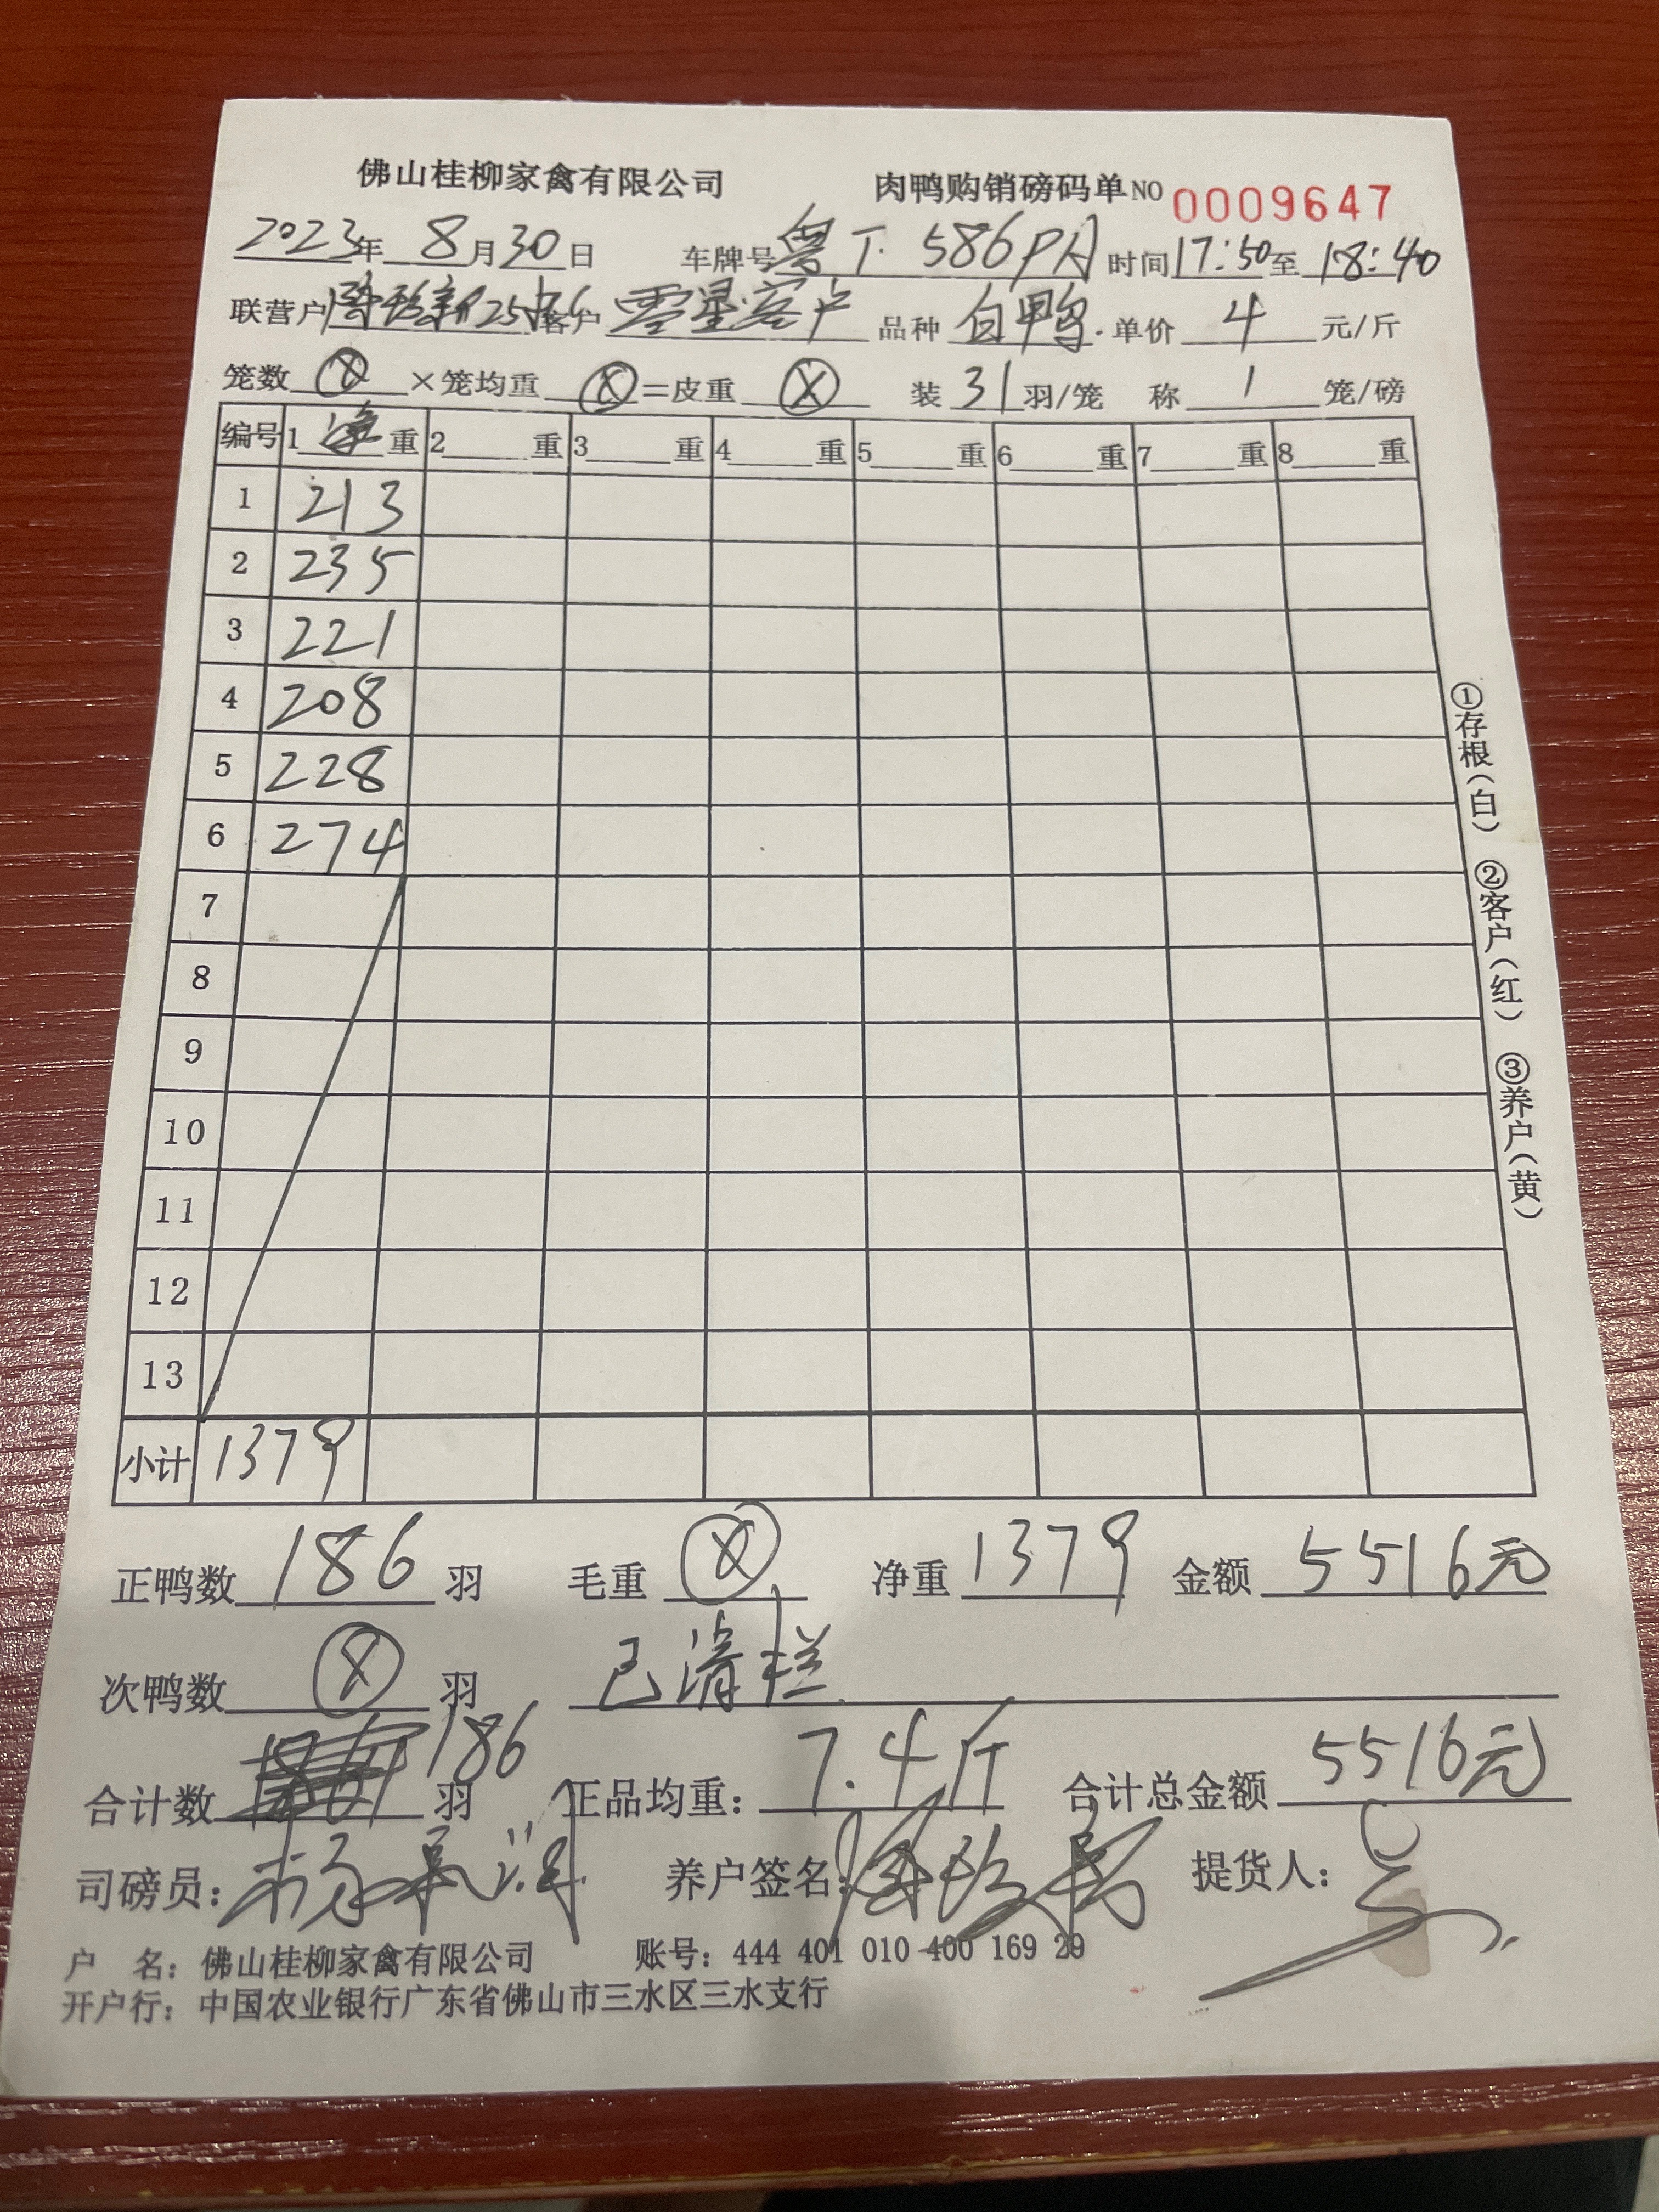 佛山桂柳家禽有限公司 肉鸭购销磅码单NO 0009647
2023年 8月30日 车牌号粤T·586PA 时间17:50至18:40
联营户 客户 零星客户 品种 白鸭 单价 4 元/斤
笼数 ⊗ ×笼均重 ⊗ =皮重 ⊗ 装 31 羽/笼 称 1 笼/磅
编号 1 净 重 2 重 3 重 4 重 5 重 6 重 7 重 8 重
1 213
2 235
3 221
4 208
5 228
6 274
7
8
9
10
11
12
13
小计 1379
①存根(白) ②客户(红) ③养户(黄)
正鸭数 186 羽 毛重 ⊗ 净重 1379 金额 5516元
次鸭数 ⊗ 羽 已清栏
合计数 186 羽 正品均重: 7.4斤 合计总金额 5516元
司磅员: 养户签名: 提货人:
户 名: 佛山桂柳家禽有限公司 账号: 444 401 010 400 169 29
开户行: 中国农业银行广东省佛山市三水区三水支行